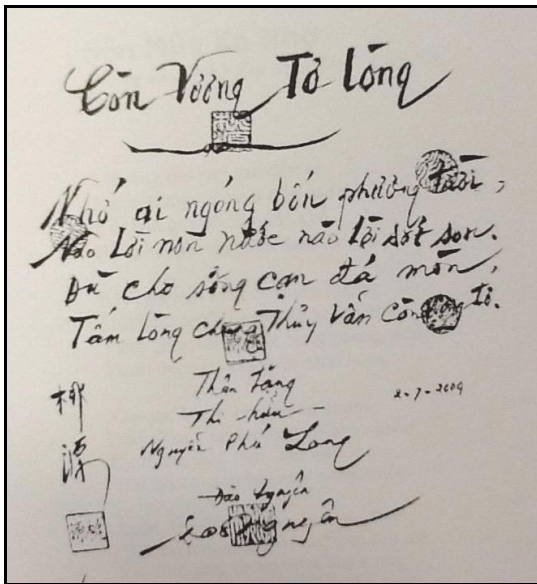 Còn Vương Tơ Lòng
Nhớ ai ngóng bốn phương trời,
Nào lời non nước nào lời sắt son.
Dù cho sông cạn đá mòn,
Tấm lòng chung thủy vẫn còn vương tơ.
Thân tặng
2-7-2009
Thi hữu -
Nguyễn Phú Long
Đào Nguyên
Đào Nguyên
桃
源